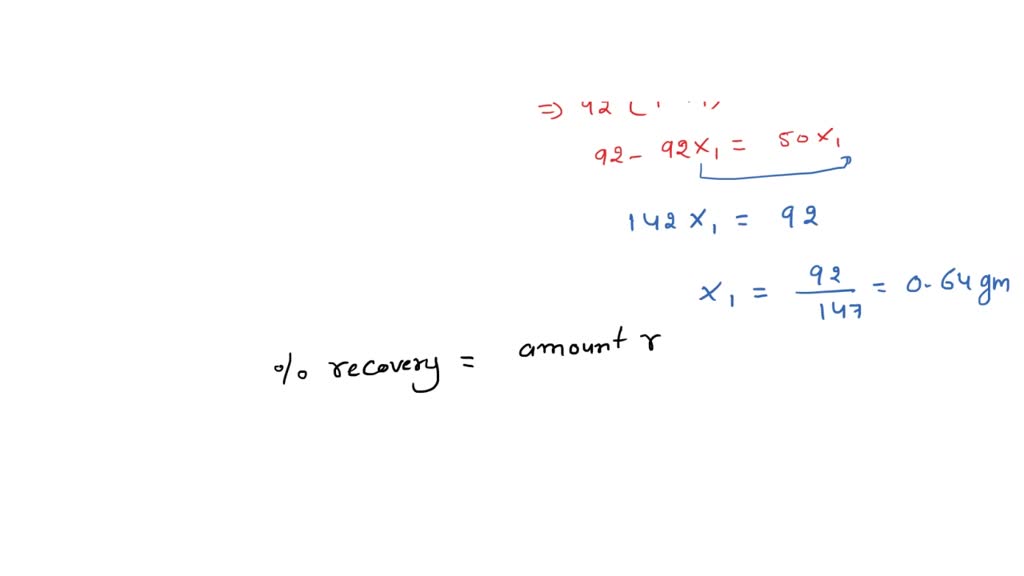 92 - 92x₁ = 50x₁
142x₁ = 92
x₁ = 92/147 = 0.64 gm
% recovery = amount r